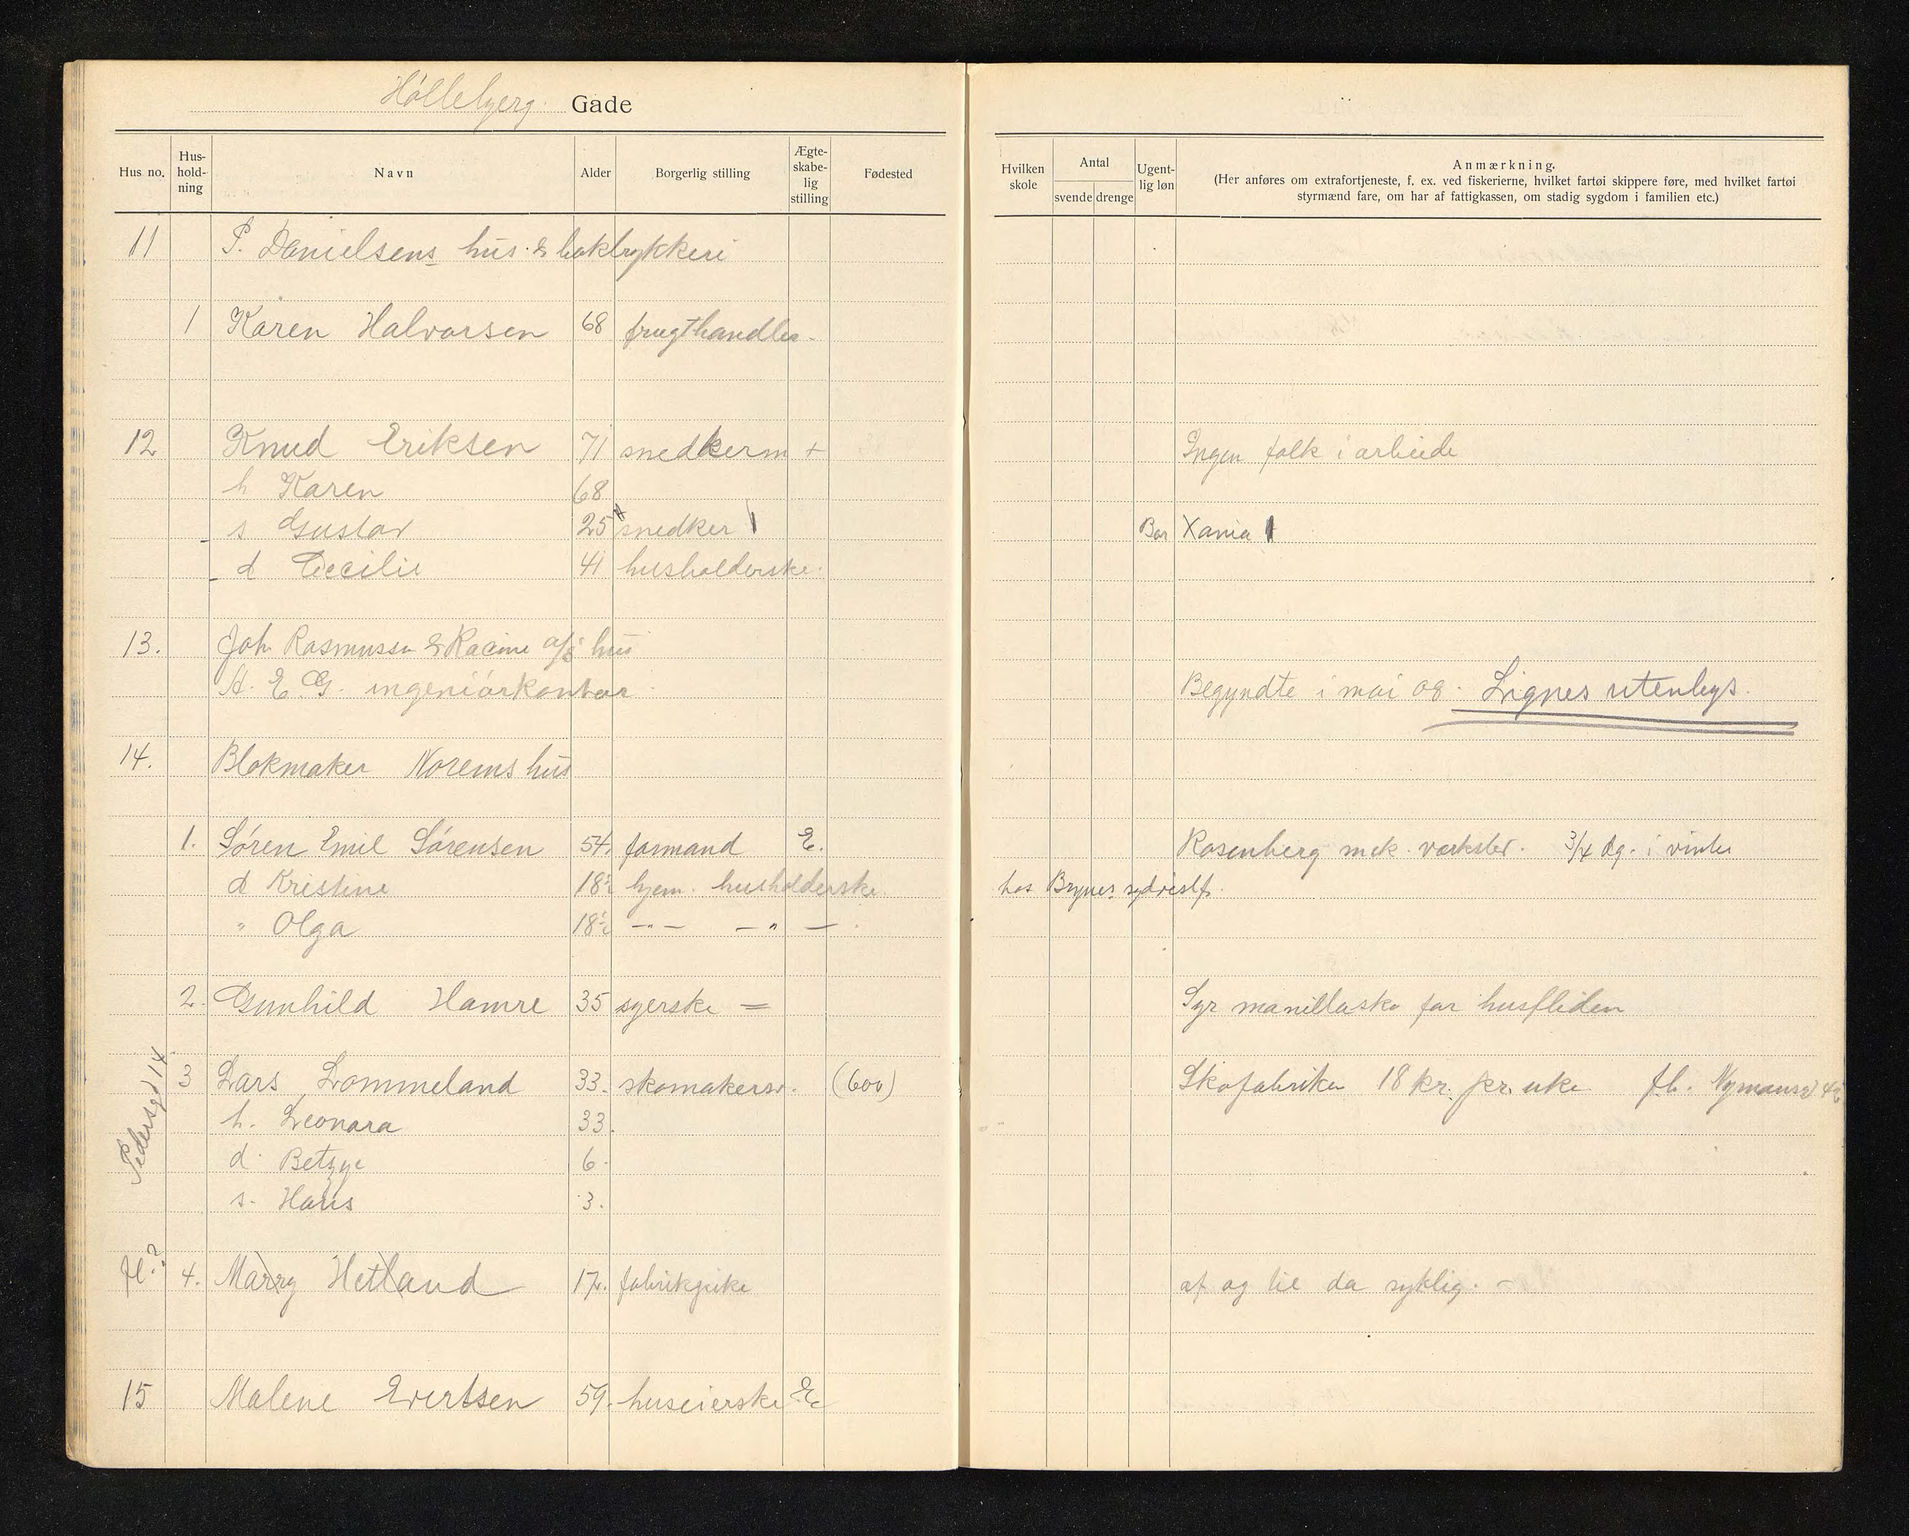 Høllebjerg Gade
Hus no. Hus-hold-ning Navn Alder Borgerlig stilling Ægte-skabe-lig stilling Fødested Hvilken skole Antal svende drenge Ugent-lig løn Anmærkning.
(Her anføres om extrafortjeneste, f. ex. ved fiskerierne, hvilket fartøi skippere føre, med hvilket fartøi
styrmænd fare, om har af fattigkassen, om stadig sygdom i familien etc.)
11 P. Danielsens hus & boktrykkeri
1 Karen Halvorsen 68 frugthandler
12 Knud Eriksen 71 snedkerm + Ingen folk i arbeide
h Karen 68
s Gustav 25 snedker Xania
d Cecilie 41 husholderske
13. Joh Rasmussen & Racine a/s hus
A. E. G. ingeniørkontor Begyndte i mai 08. Lignes utenbys.
14. Blokmaker Norems hus
1. Søren Emil Sørensen 54. formand E. Rosenberg mek. værksted. 3/4 dg. i vinter
d Kristine 18½ hjem. husholderske hos Brynes
" Olga 18½ — " — — " —
2. Gunhild Hamre 35 syerske = Syr manillasko for husfliden
3 Lars Lommeland 33. skomakersv. (600) Skofabriken 18 kr. pr. uke fl. Nymansv 42
Pedersgt 14
h. Leonora 33.
d. Betzye 6.
s. Hans 3.
fl.? 4. Marry Hetland 17. fabrikpike af og til da syklig. -
15 Malene Evertsen 59. huseierske E